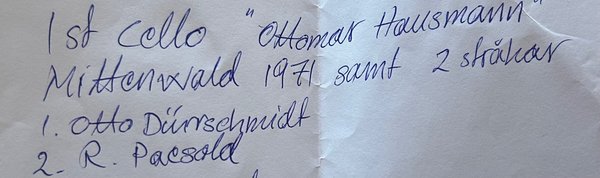 1 st cello "Ottomar Hausmann"
Mittenwald 1971 samt 2 stråkar
1. Otto Dürrschmidt
2. R. Paesold